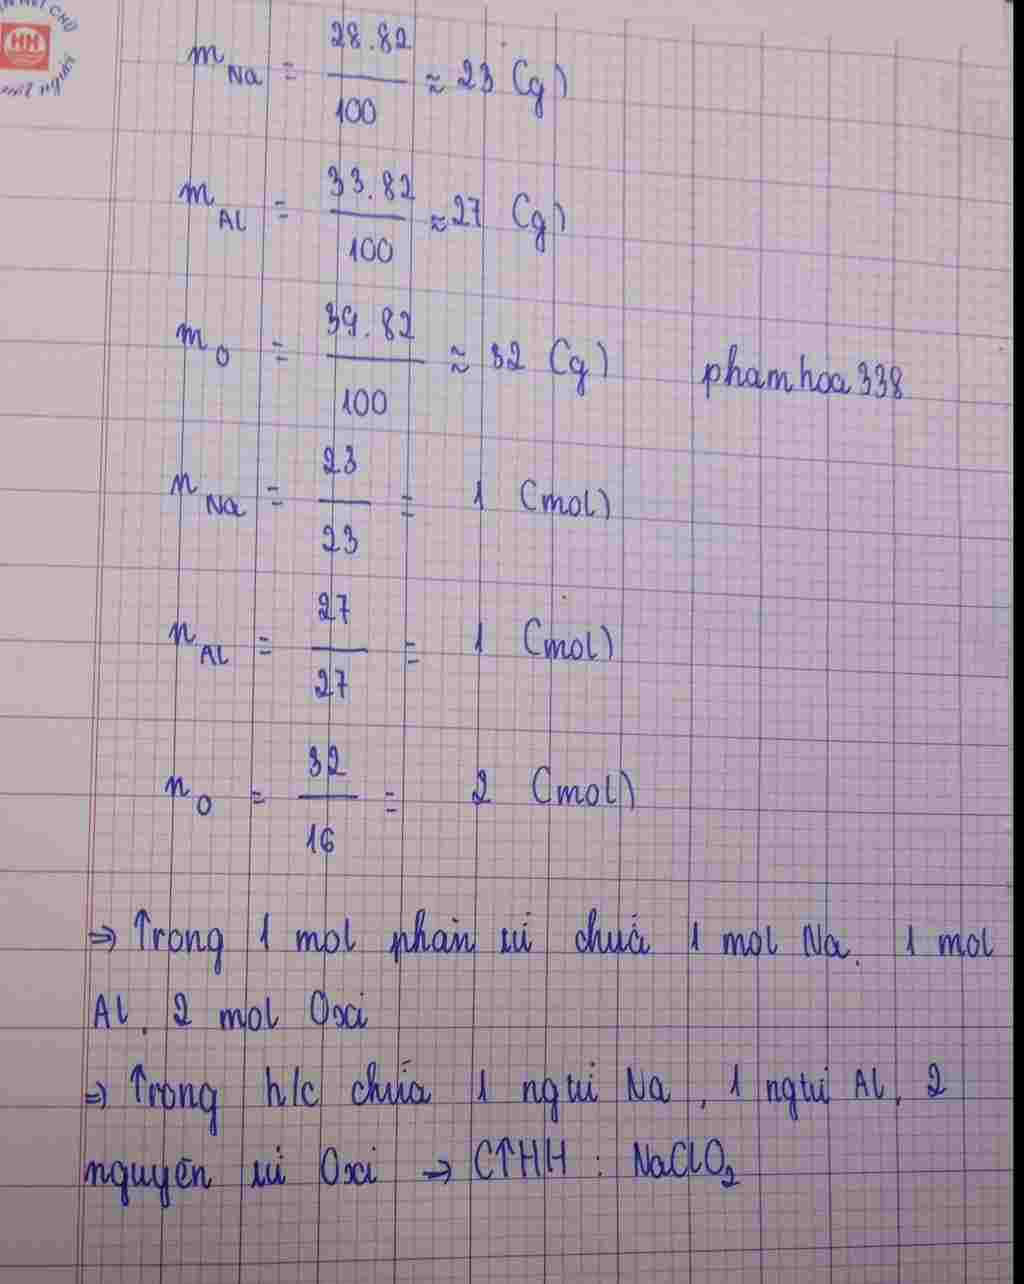 HH
m_Na = 28.82/100 ≈ 23 (g)
m_Al = 33.82/100 ≈ 27 (g)
m_O = 39.82/100 ≈ 32 (g) phamhoa338
n_Na = 23/23 = 1 (mol)
n_Al = 27/27 = 1 (mol)
n_O = 32/16 = 2 (mol)
⇒ Trong 1 mol phân tử chứa 1 mol Na. 1 mol
Al. 2 mol Oxi
⇒ Trong h/c chứa 1 ngtử Na, 1 ngtử Al, 2
nguyên tử Oxi → CTHH : NaClO₂